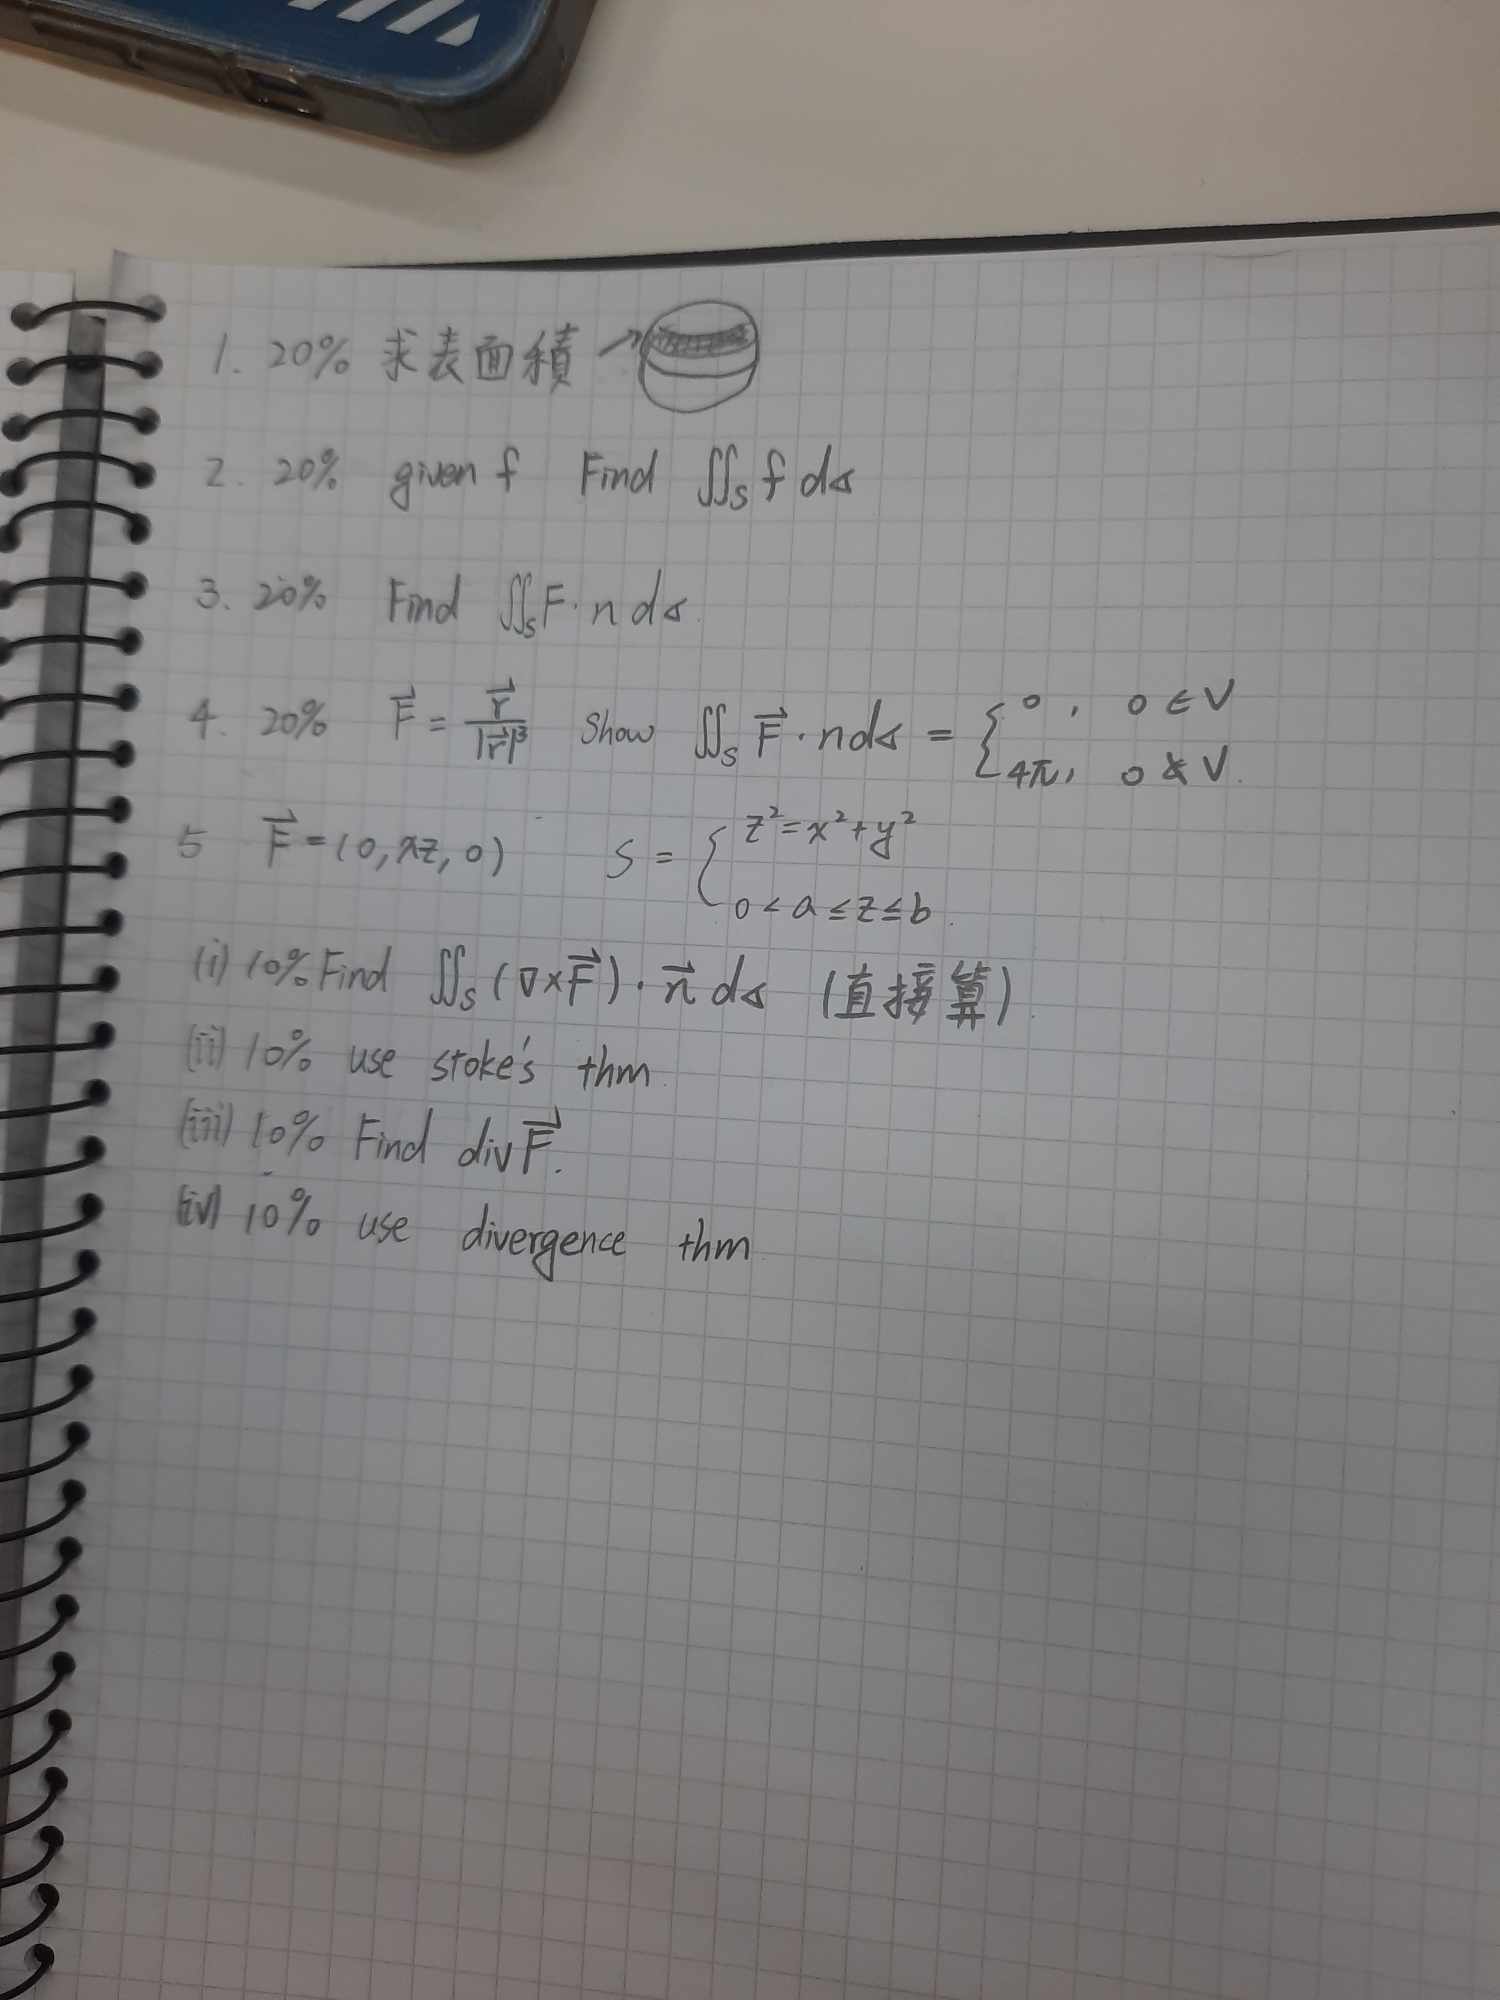 1. 20% 求表面積 →
2. 20% given f Find ∬_S f ds
3. 20% Find ∬_S F · n ds.
4. 20% \vec{F} = \frac{\vec{r}}{|\vec{r}|^3} Show ∬_S \vec{F} · n ds = { 0, 0 ∈ V
4π, 0 ∉ V.
5 \vec{F} = (0, xz, 0) S = { z² = x² + y²
0 < a ≤ z ≤ b.
(i) 10% Find ∬_S (∇×\vec{F}) · \vec{n} ds (直接算).
(ii) 10% use stoke's thm.
(iii) 10% Find div \vec{F}.
(iv) 10% use divergence thm